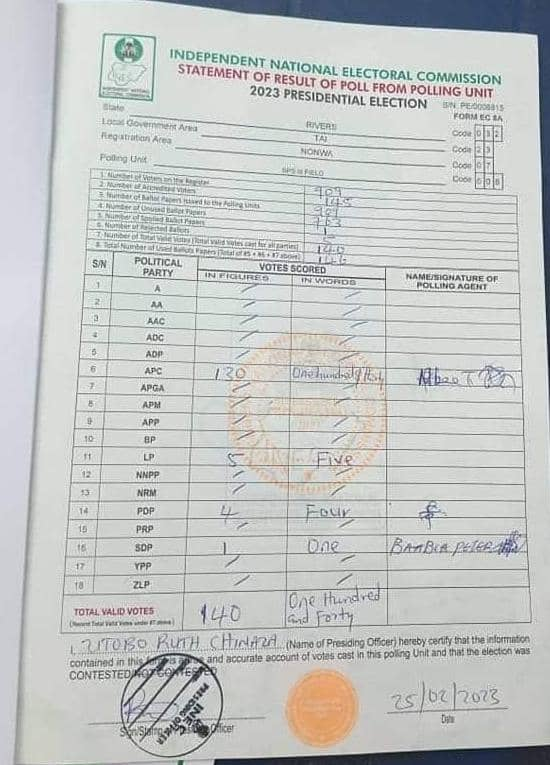 INDEPENDENT NATIONAL ELECTORAL COMMISSION
STATEMENT OF RESULT OF POLL FROM POLLING UNIT
2023 PRESIDENTIAL ELECTION
S/N. PE/0006815
FORM EC 8A
State RIVERS Code 0 3 2
Local Government Area TAI Code 2 3
Registration Area NONWA Code 0 7
Polling Unit FIELD Code 0 0 6
1. Number of Voters on the Register 909
2. Number of Accredited Voters 145
3. Number of Ballot Papers issued to the Polling Units
4. Number of Unused Ballot Papers 763
5. Number of Spoiled Ballot Papers
6. Number of Rejected Ballots
7. Number of Total Valid Votes (Total Valid Votes cast for all parties) 140
8. Total Number of Used Ballots Papers (Total of #5 + #6 + #7 above) 146
S/N POLITICAL PARTY VOTES SCORED NAME/SIGNATURE OF POLLING AGENT
IN FIGURES IN WORDS
1 A
2 AA
3 AAC
4 ADC
5 ADP
6 APC 130 One hundred
7 APGA
8 APM
9 APP
10 BP
11 LP 5 Five
12 NNPP
13 NRM
14 PDP 4 Four
15 PRP
16 SDP 1 One PETER
17 YPP
18 ZLP
TOTAL VALID VOTES 140 One Hundred and Forty
(Record Total Valid Votes under #7 above)
I, UTOBO RUTH CHINAZA (Name of Presiding Officer) hereby certify that the information
contained in this form is a and accurate account of votes cast in this polling Unit and that the election was
CONTESTED/NOT CONTESTED
25/02/2023
Sign/Stamp Officer
Date
INEC
PRESIDING OFFICER